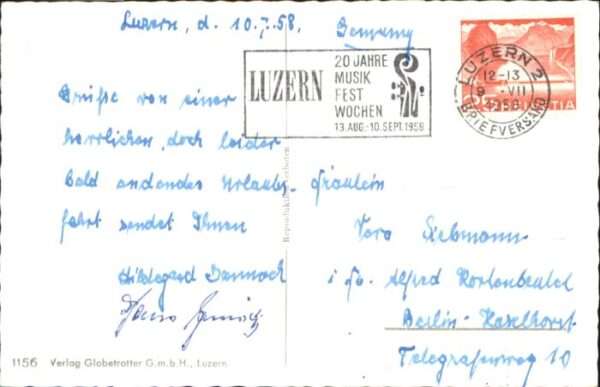 Luzern, d. 10.7.58.
Germany
LUZERN
20 JAHRE
MUSIK
FEST
WOCHEN
13. AUG.-10. SEPT. 1958
LUZERN 2
12-13
9. VII
1958
BRIEFVERSAND
HELVETIA
Grüße von einer
herrlichen, doch leider
bald endenden Urlaubs-
fahrt sendet Ihnen
Hildegard
Reproduktion verboten
Fräulein
Vera Siebmann
i. Fa. Alfred Kortenbeutel
Berlin-Haselhorst
Telegrafenweg 10
1156 Verlag Globetrotter G.m.b.H., Luzern